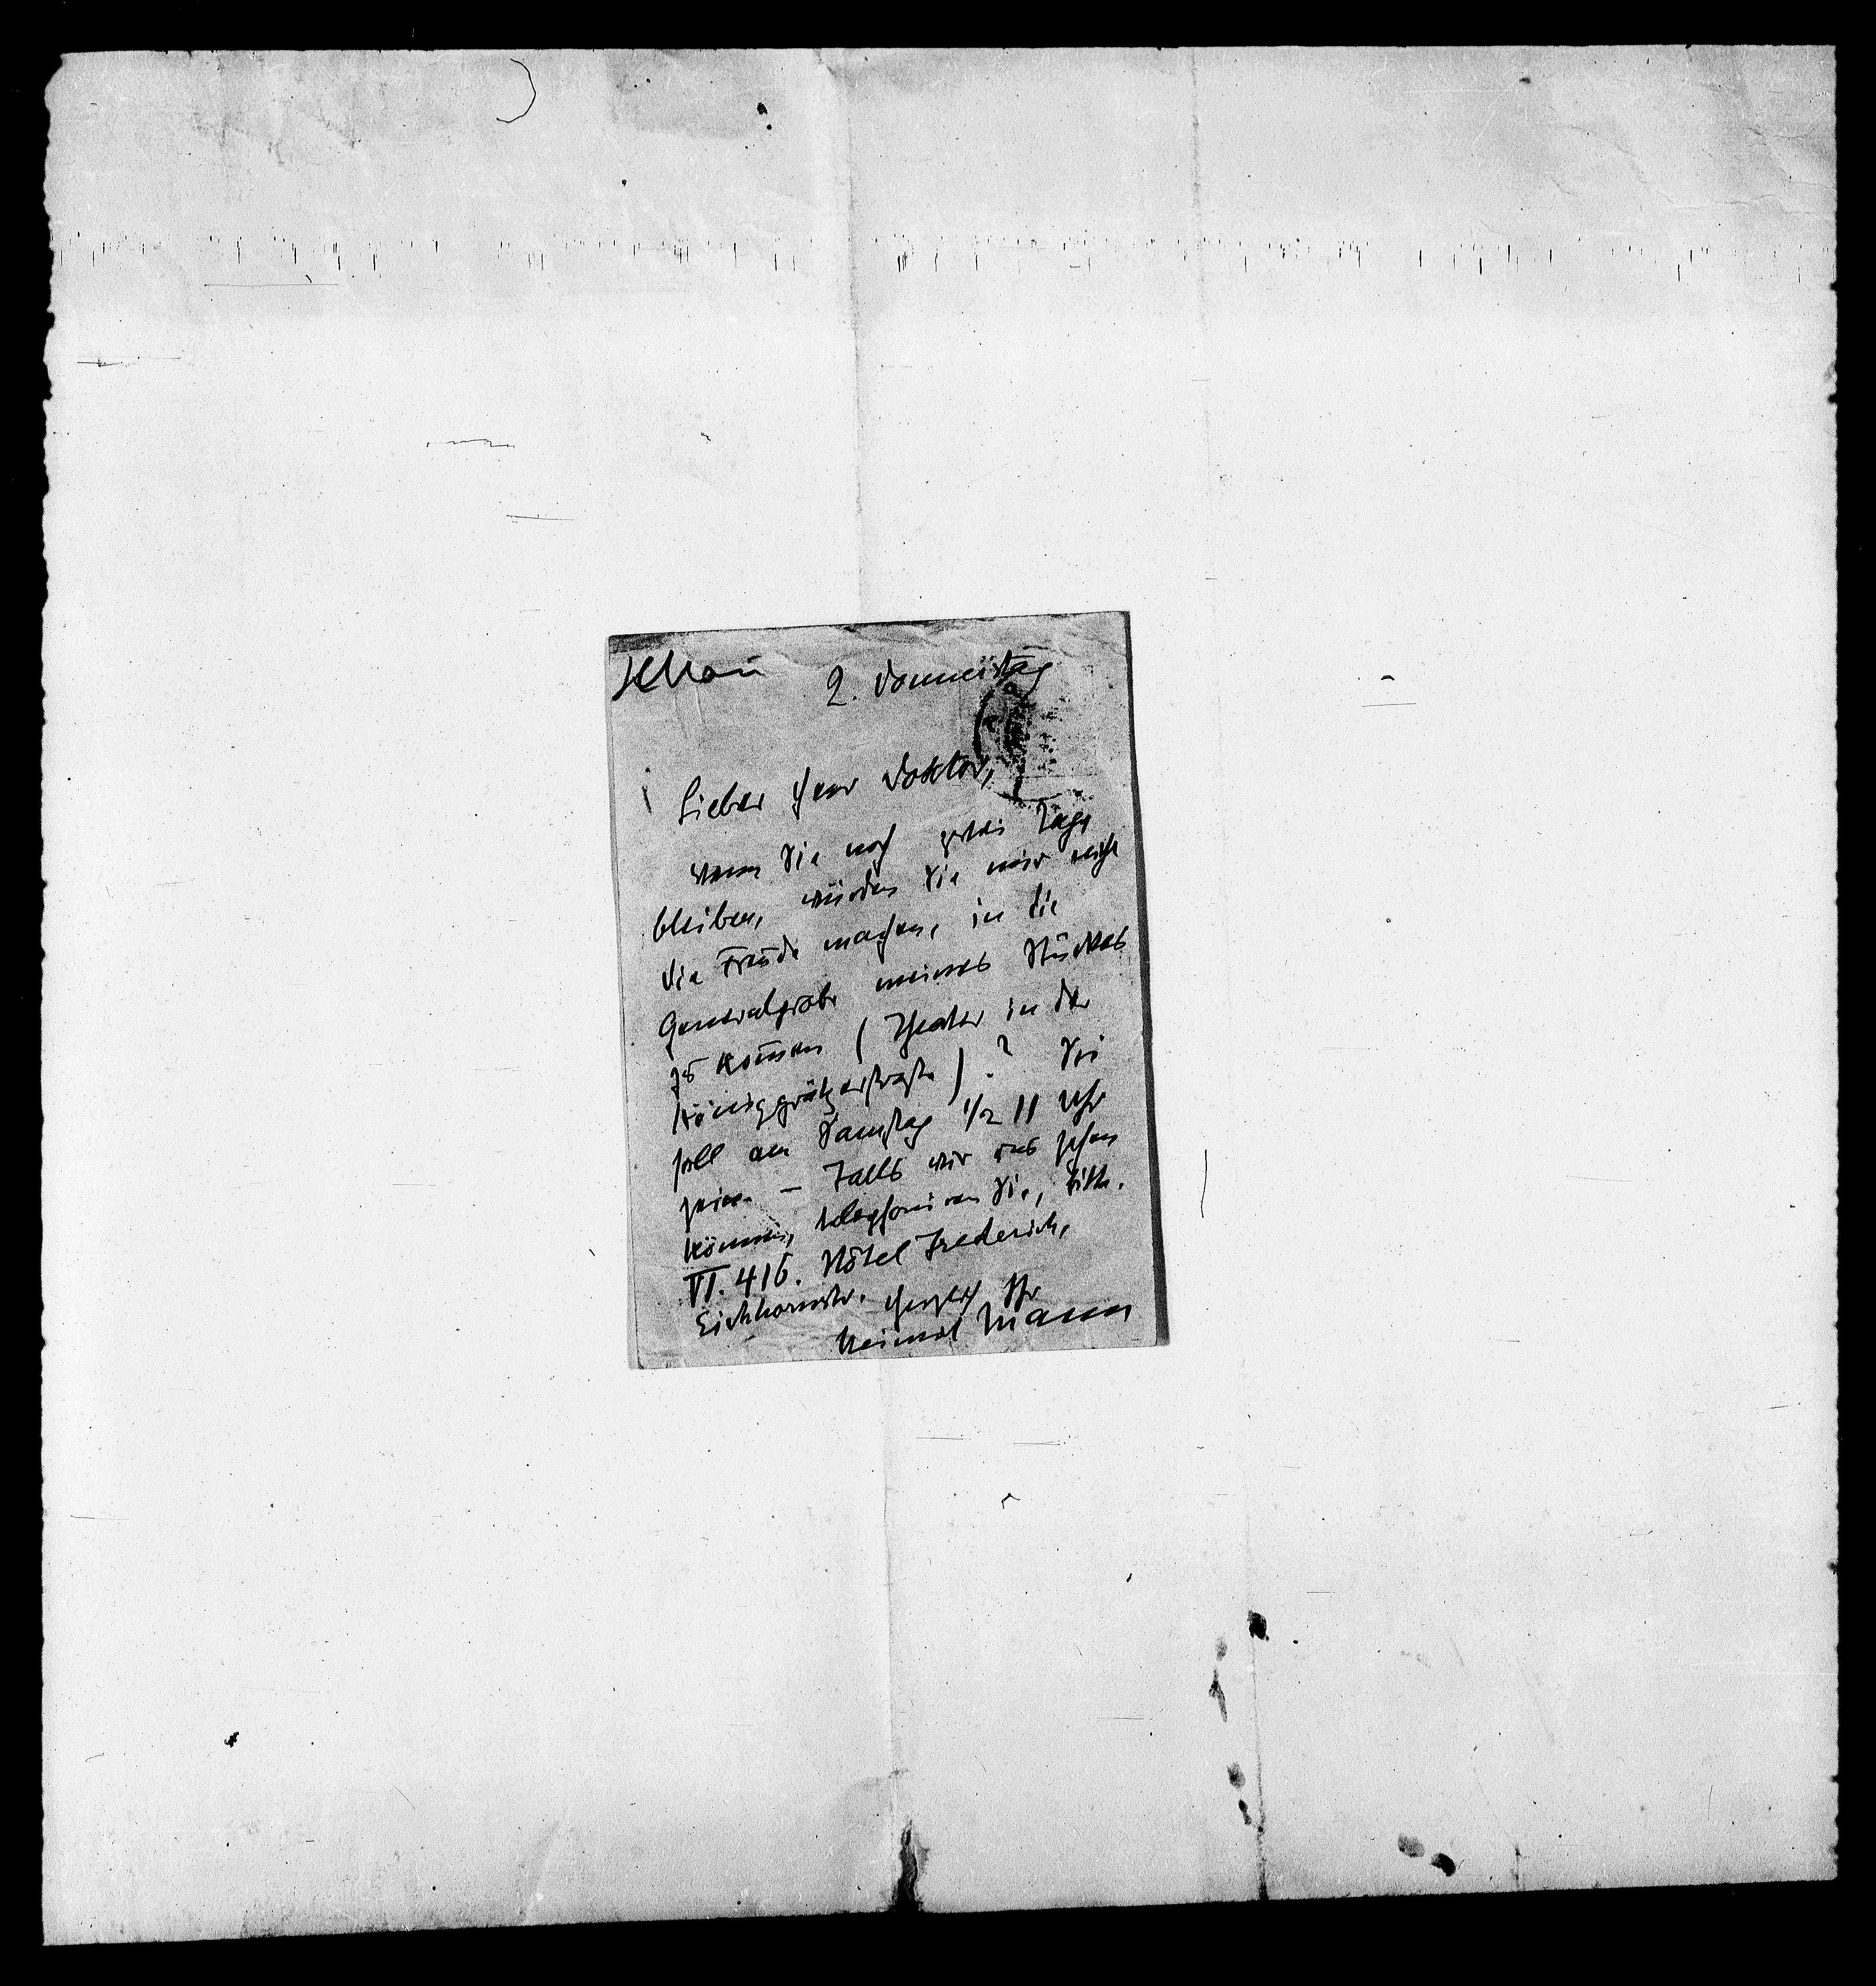 HMann
2. Donnerstag
Lieber Herr Doktor,
wenn Sie noch zwei Tage
bleiben, würden Sie mir nicht
die Freude machen, in die
Generalprobe meines Stückes
zu kommen (Theater in der
Königgrätzerstraße)? Sie
soll am Samstag 1/2 11 Uhr
sein. – Falls wir uns sehen
können, telephoniren Sie, bitte.
VI. 416. Hôtel Frederich,
Eichhornstr. Herzlich Ihr
Heinrich Mann